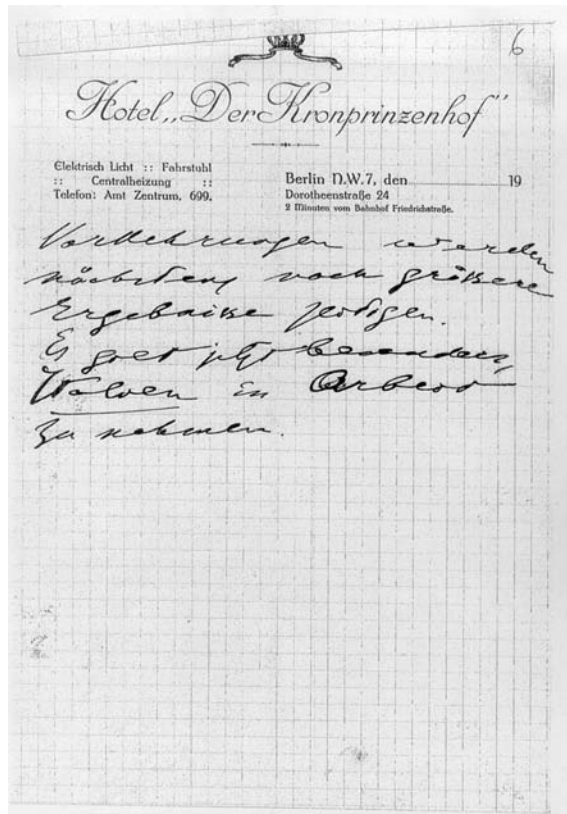 6
Hotel „Der Kronprinzenhof“
Elektrisch Licht :: Fahrstuhl
:: Centralheizung ::
Telefon: Amt Zentrum, 699.
Berlin N.W.7, den 19
Dorotheenstraße 24
2 Minuten vom Bahnhof Friedrichstraße.
Vorkehrungen werden
nächstens noch größere
Ergebnisse zeitigen.
Es gilt jetzt besonders,
Italien in Arbeit
zu nehmen.